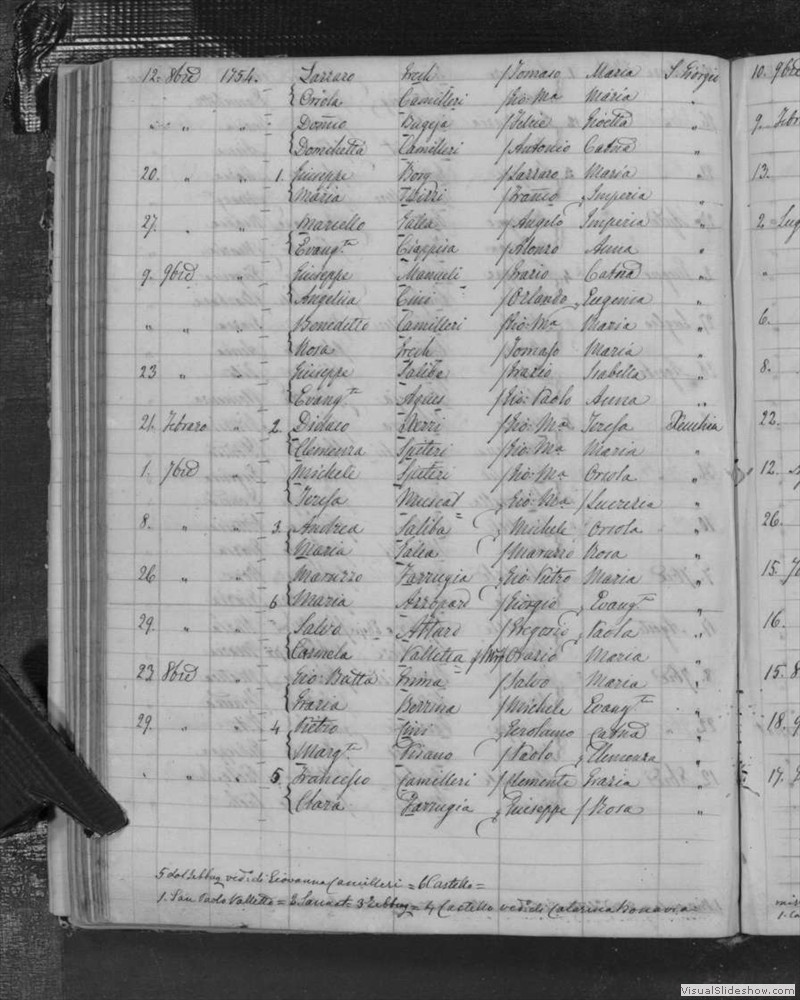 12. 8bre 1754. { Lazzaro Grech / Tomaso Maria S. Giorgio
{ Orsola Camilleri / Gio: Ma Maria "
" " " { Domco Bugeja / Felice Gioetta "
{ Domenichetta Camilleri / Antonio Catna "
20. " " 1. { Giuseppe Borg / Lazzaro Maria "
{ Maria / Franco Imperia "
27. " " { Marcello Galea / Angelo Imperia "
{ Evangta Ciappisa / Alonzo Anna "
9. 9bre " { Giuseppe Manueli / Grazio Catna "
{ Angelica Cini / Orlando Eugenia "
" " " { Benedetto Camilleri / Gio: Ma Maria "
{ Rosa Grech / Tomaso Maria "
23 " " { Giuseppe Saliba / Grazio Isabella "
{ Evangta Agius / Gio: Paolo Anna "
21. Febraro " 2. { Didaco / Gio: Ma Teresa Xeuchia
{ Clemenza Spiteri / Gio: Ma Maria "
1. 7bre " { Michele Spiteri / Gio: Ma Orsola "
{ Teresa Muscat / Gio: Ma / Lucrezia "
8. " " 3. { Andrea Saliba / Michele Orsola "
{ Maria Galea / Maruzzo Rosa "
26 " " { Maruzzo Farrugia / Gio: Pietro Maria "
6 { Maria Azzopard / Giorgio Evangta "
29. " " { Salvo Attard / Gregorio Paola "
{ Carmela Valletta / Orazio Maria "
23 8bre " { Gio: Batta Grima / Salvo Maria "
{ Grazia / Michele Evangta "
29. " " 4 { Pietro Cini / Gerolamo Catna "
{ Margta Pisano / Paolo Clemenza "
" " " 5. { Francesco Camilleri / Clemente Grazia "
{ Clara Farrugia / Giuseppe / Rosa "
5 dal Zebbug ved: di Giovanna Camilleri = 6 Castello =
1. San Paolo Valletta = 2. Sannat 3 Zebbug = 4 Castello ved: di Catarina Bonavia
10. 9bre
13.
6.
8.
22.
12.
26.
15.
16.
15. 8
18. 9
17.
VisualSlideshow.com